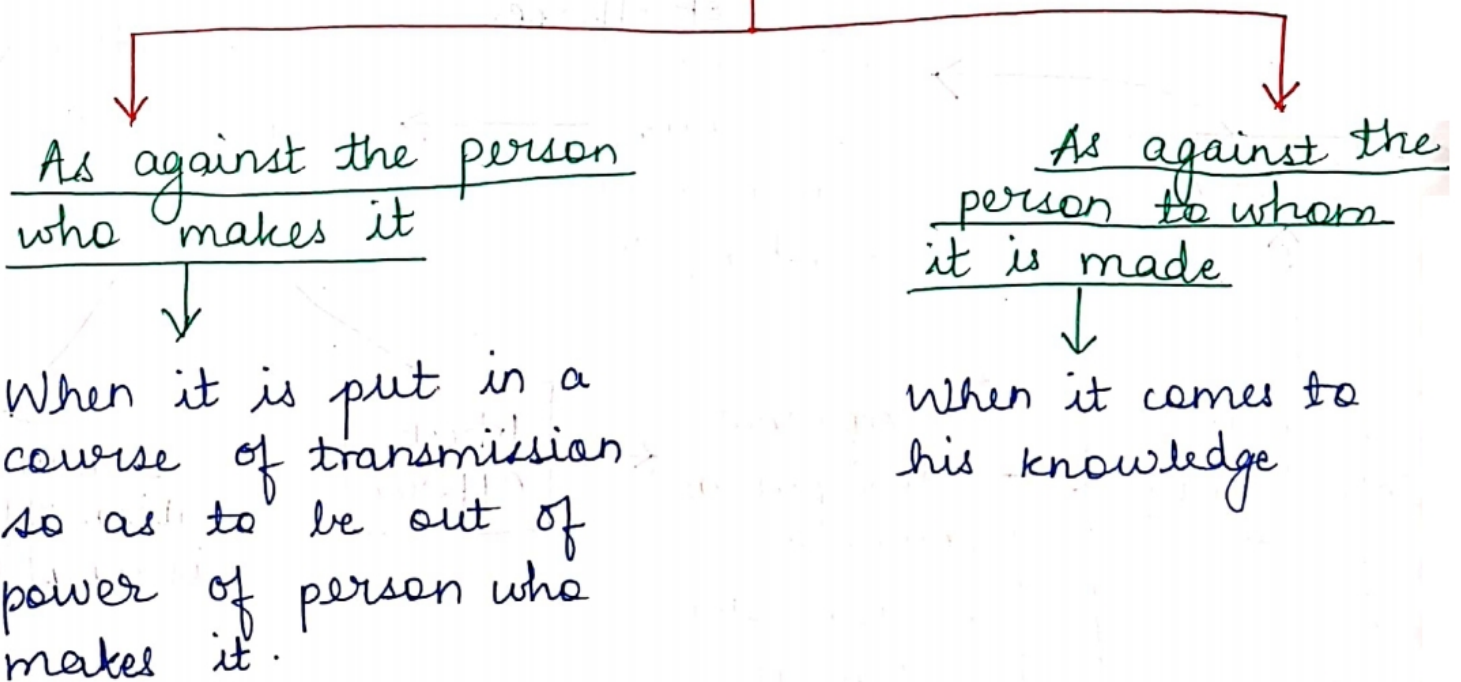 As against the person
who makes it
When it is put in a
course of transmission
so as to be out of
power of person who
makes it.
As against the
person to whom
it is made
When it comes to
his knowledge